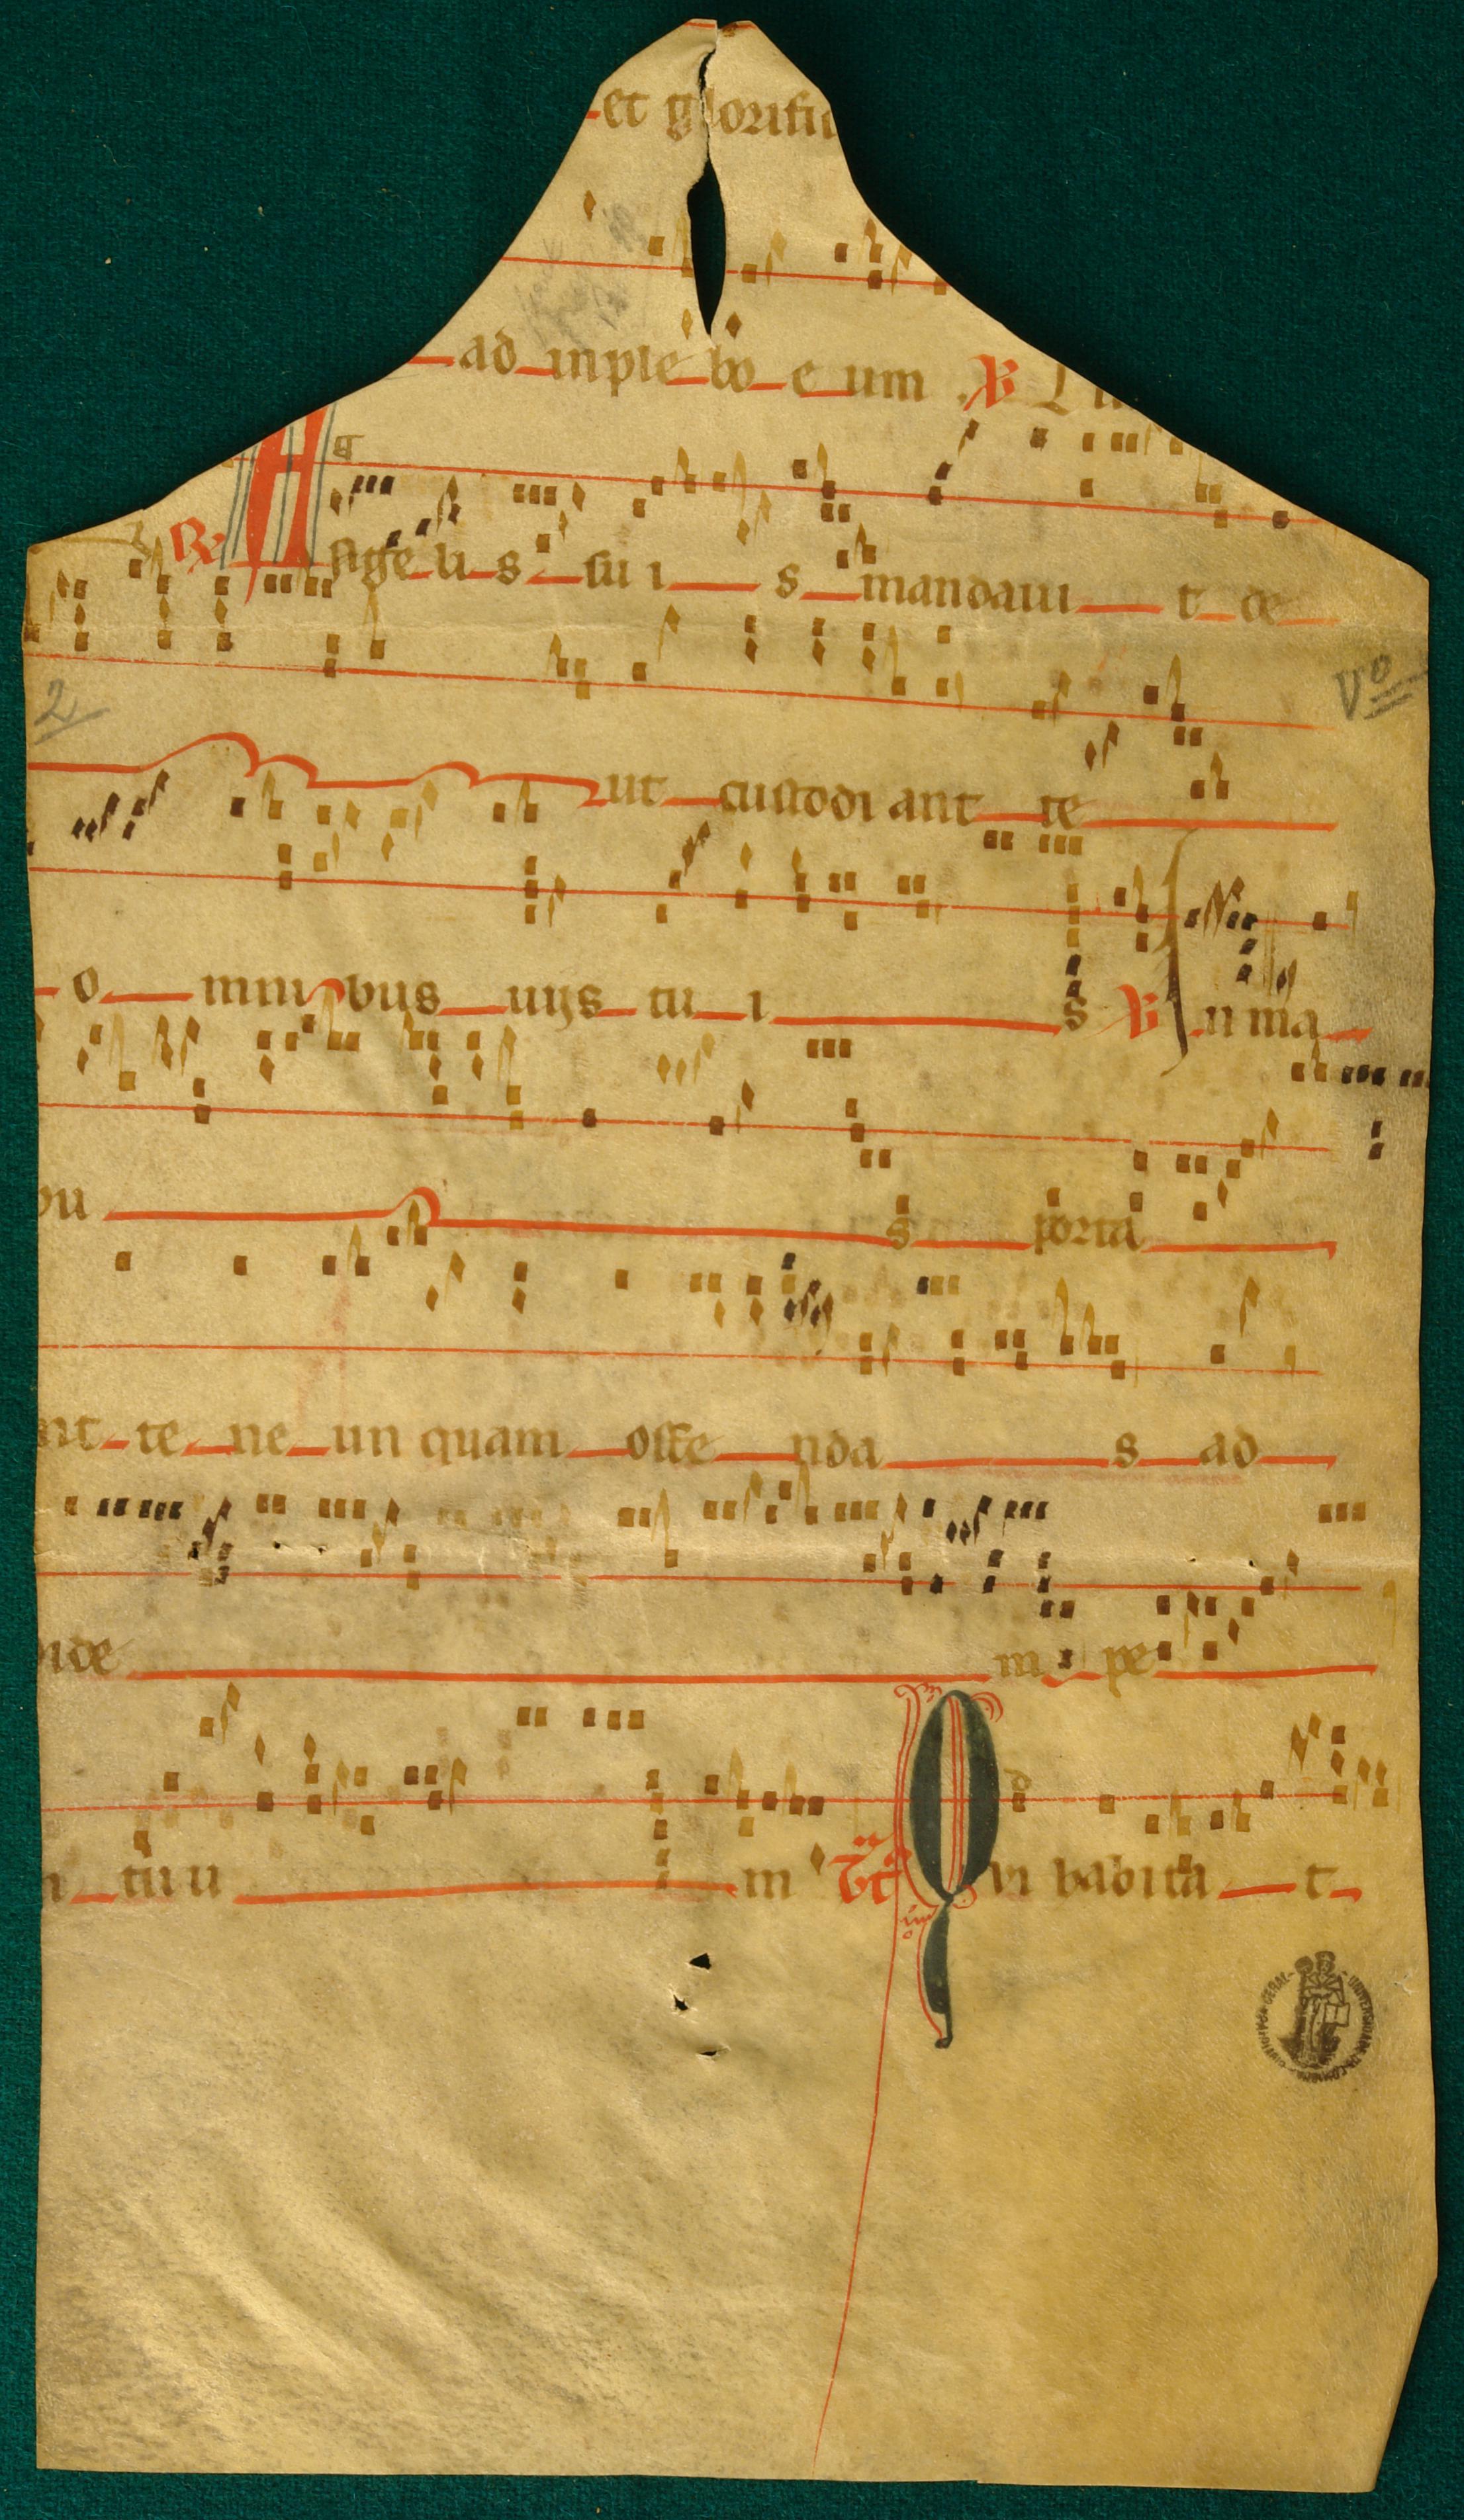 et glorifi
ad inple bo e um . ℣ L
℟ A nge li s su i s mandaui t de
2 Vº
ut custodi ant te
o mni bus uijs tu i s ℣ In ma
bu s porta
nt te ne un quam offe nda s ad
pide m pe
m tuu m Tct Q vi habita t